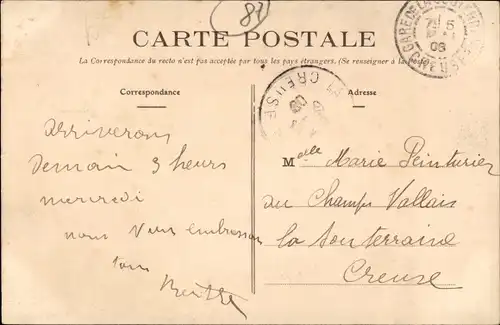 87
CARTE POSTALE
La Correspondance du recto n'est pas acceptée par tous les pays étrangers. (Se renseigner à la poste).
Correspondance
Adresse
GARE DE LA SOUTERRAINE
CREUSE
08
CREUSE
arriverons
Demain 3 heurs
mercredi
nous vous embrassons
tous
Berthe
Melle Marie Peinturier
du Champs Vallais
la Souterraine
Creuse